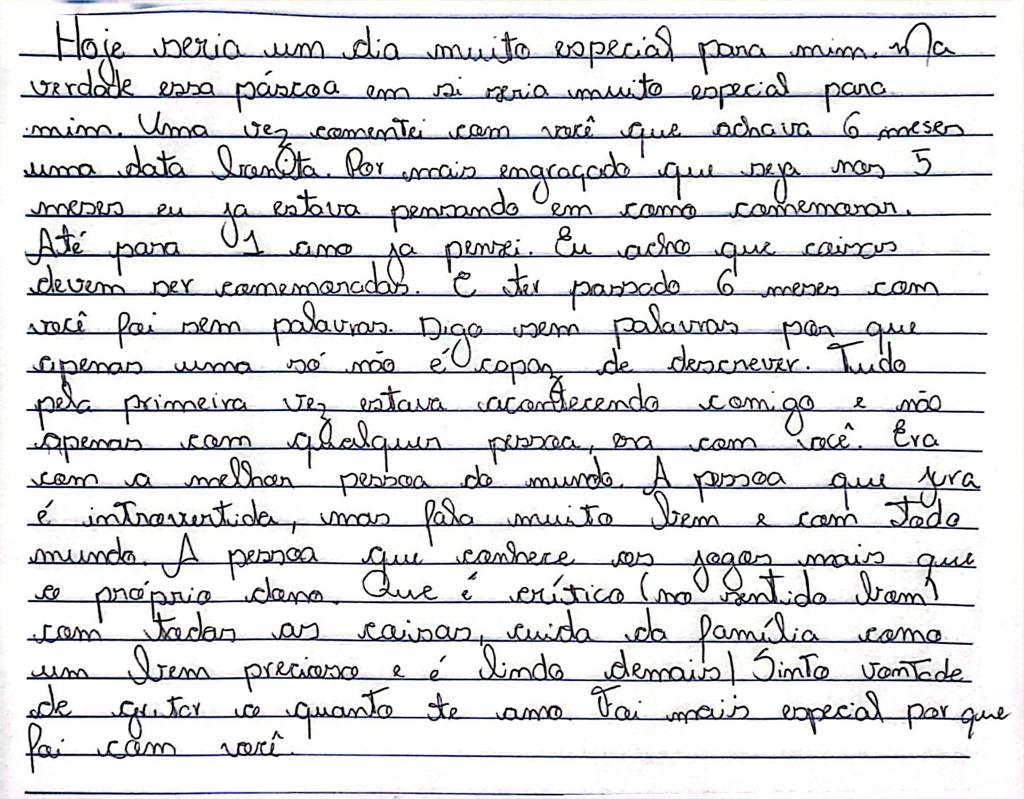 Hoje seria um dia muito especial para mim. Na
verdade essa páscoa em si seria muito especial para
mim. Uma vez comentei com você que achava 6 meses
uma data bonita. Por mais engraçado que seja nos 5
meses eu ja estava pensando em como comemorar.
Até para 1 ano ja pensei. Eu acho que coisas
devem ser comemoradas. E ter passado 6 meses com
você foi sem palavras. Digo sem palavras por que
apenas uma só não é capaz de descrever. Tudo
pela primeira vez estava acontecendo comigo e não
apenas com qualquer pessoa, era com você. Era
com a melhor pessoa do mundo. A pessoa que jura
é introvertida, mas fala muito bem e com todo
mundo. A pessoa que conhece os jogos mais que
o próprio dono. Que é crítico (no sentido bom)
com todas as coisas, cuida da família como
um bem precioso e é lindo demais! Sinto vontade
de gritar o quanto te amo. Foi mais especial por que
foi com você.